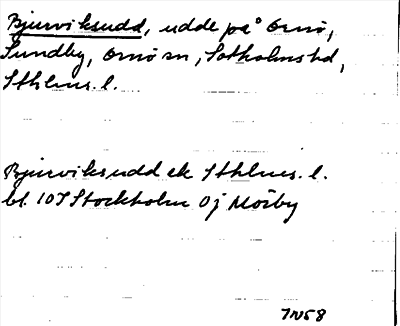 Bjurviksudd, udde på Ornö,
Sundby, Ornö sn, Sotholms hd,
Sthlms. l.
Bjurviksudd ek Sthlms. l.
bl. 107 Stockholm Oj Mörby
7N58